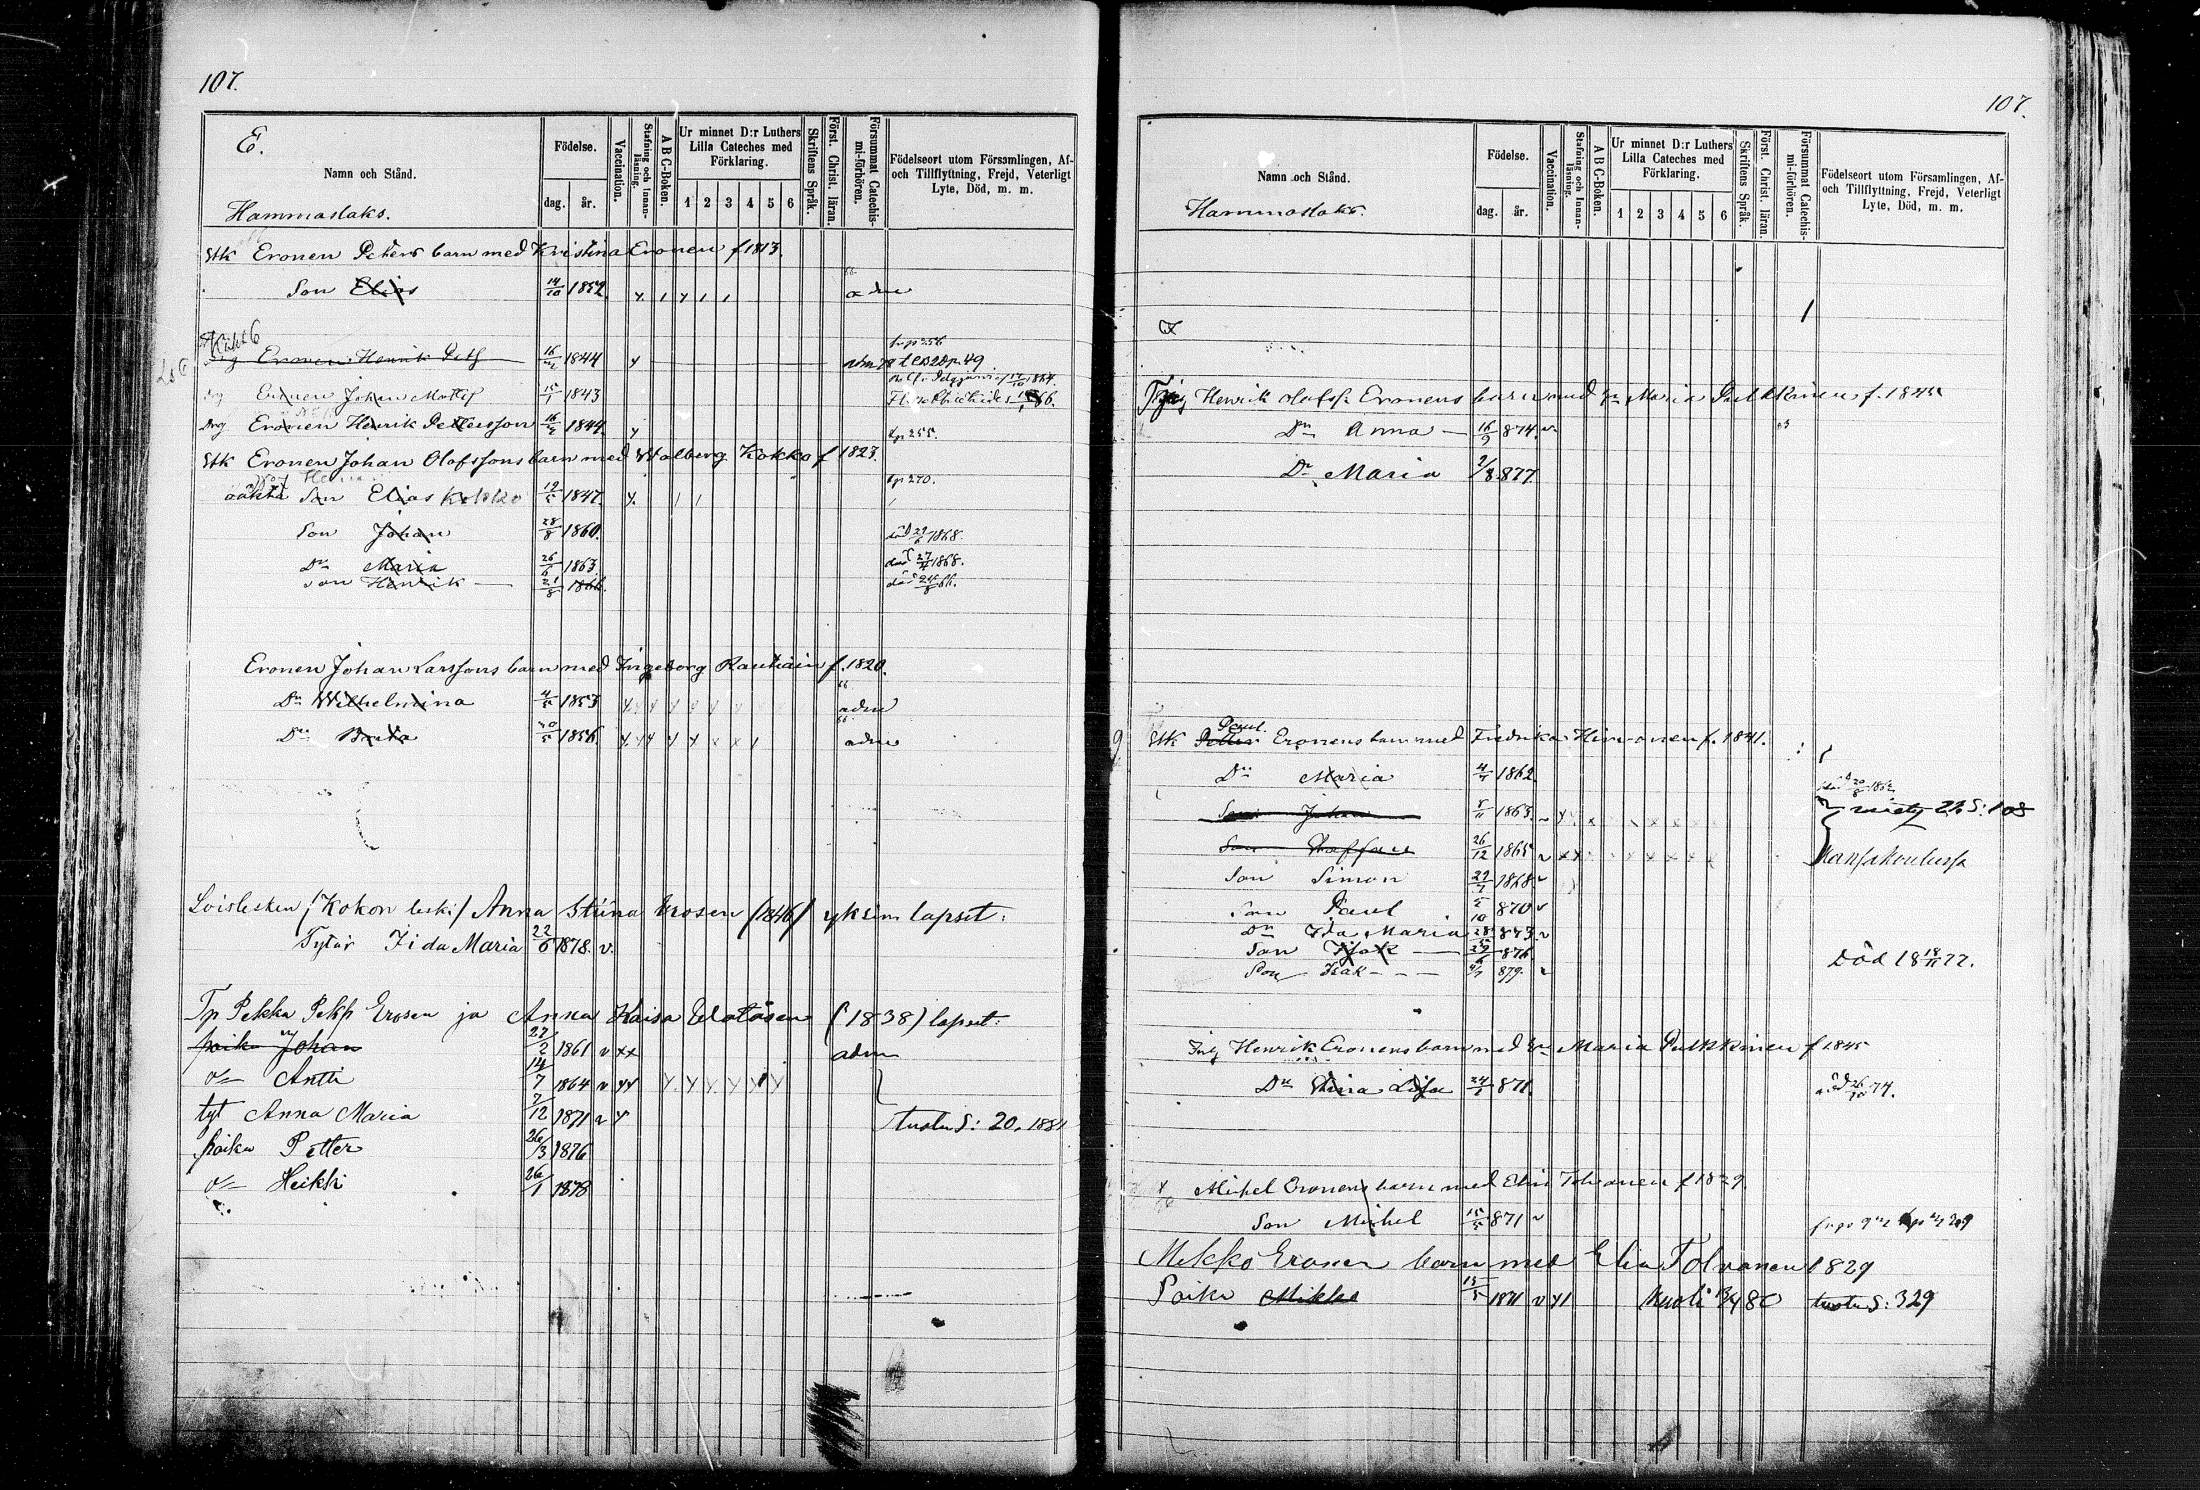 107.
E.
Namn och Stånd.
Hammaslaks.
Födelse.
dag. år.
Vaccination.
Stafning och Innan-läsning.
A B C-Boken.
Ur minnet D:r Luthers Lilla Cateches med Förklaring.
1 2 3 4 5 6
Skriftens Språk.
Först. Christ. läran.
Försummat Catechis-mi-förhören.
Födelseort utom Församlingen, Af- och Tillflyttning, Frejd, Veterligt Lyte, Död, m. m.
Stk Eronen Peters barn med Kristina Eronen f 1813.
Son Elias 14/10 1852. adm
Eronen Henrik Pets 16/2 1844 p. 49
Eronen Johan Mattss 15/1 1843
Drg Eronen Henrik Pettersson 16/2 1844. tp 255.
Stk Eronen Johan Olofssons barn med Walborg Kokko f 1823.
oäkta Son Elias Kokko 12/5 1847. tp 270.
Son Johan 28/8 1860. död 1868.
Dr Maria 26/6 1863. död 1868.
Son Henrik 21/8 1866. död 24/8 66.
Eronen Johan Larssons barn med Ingeborg Rautiain f. 1820.
Dr Wilhelmina 4/5 1853 adm
Dr Brita 30/5 1856. adm
Loislesken / Kokon leski / Anna Stiina Erosen (1846) yksin lapset:
Tytär Iida Maria 22/6 1878. v.
Tp Pekka Pekp Erosen ja Anna Kaisa (1838) lapset:
poika Johan 22/2 1861 v xx adm
Antti 14/7 1864
tyt Anna Maria 7/12 1871
tustu S: 20, 1881
poika Petter 26/3 1876
Heikki 26/1 1878
107.
Namn och Stånd.
Hammaslaks.
Födelse.
dag. år.
Vaccination.
Stafning och Innan-läsning.
A B C-Boken.
Ur minnet D:r Luthers Lilla Cateches med Förklaring.
1 2 3 4 5 6
Skriftens Språk.
Först. Christ. läran.
Försummat Catechis-mi-förhören.
Födelseort utom Församlingen, Af- och Tillflyttning, Frejd, Veterligt Lyte, Död, m. m.
Henrik Olofss. Eronens barn med Maria Pulkkinen f. 1845
Dr Anna 16/9 874.
Dr Maria 2/8 877.
Stk Petter Paul Eronens barn med Fredrika Hirvonen f. 1841.
Dr Maria 4/4 1862.
Son Johan 8/11 1863. S: 108
Son Staffan 26/12 1865 Kansakoulussa
Son Simon 1868
Son Paul 5/10 870
Dr Ida Maria 873.
Son Isak 876 Död 18 77.
Son Isak 879.
Henrik Eronens barn med Maria Pulkkinen f 1845
Dr Stina Lisa 871. 74.
Mickel Eronens barn med Elin Tolvanen f 1829.
Son Mickel 15/5 871
Mikko Eronen barn med Elin Tolvanen 1829
Poika Mikko 15/5 1871 kuoli 80 tustu S: 329